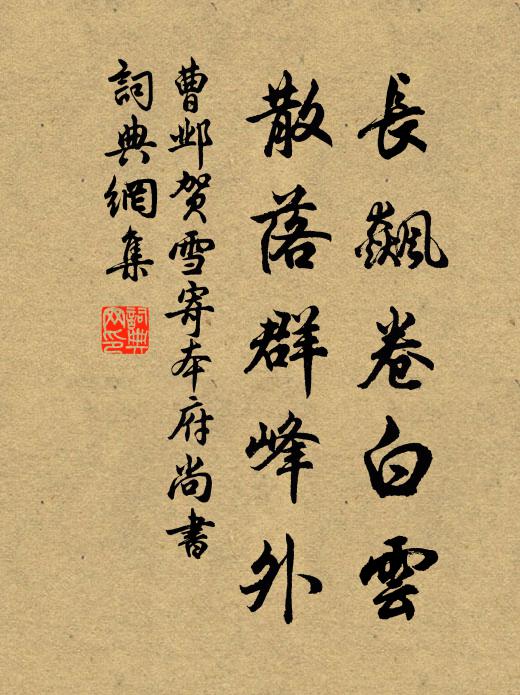 長飆卷白雲
散落群峰外
曹邺贺雪寄本府尚書
詞典網集
詞典網印